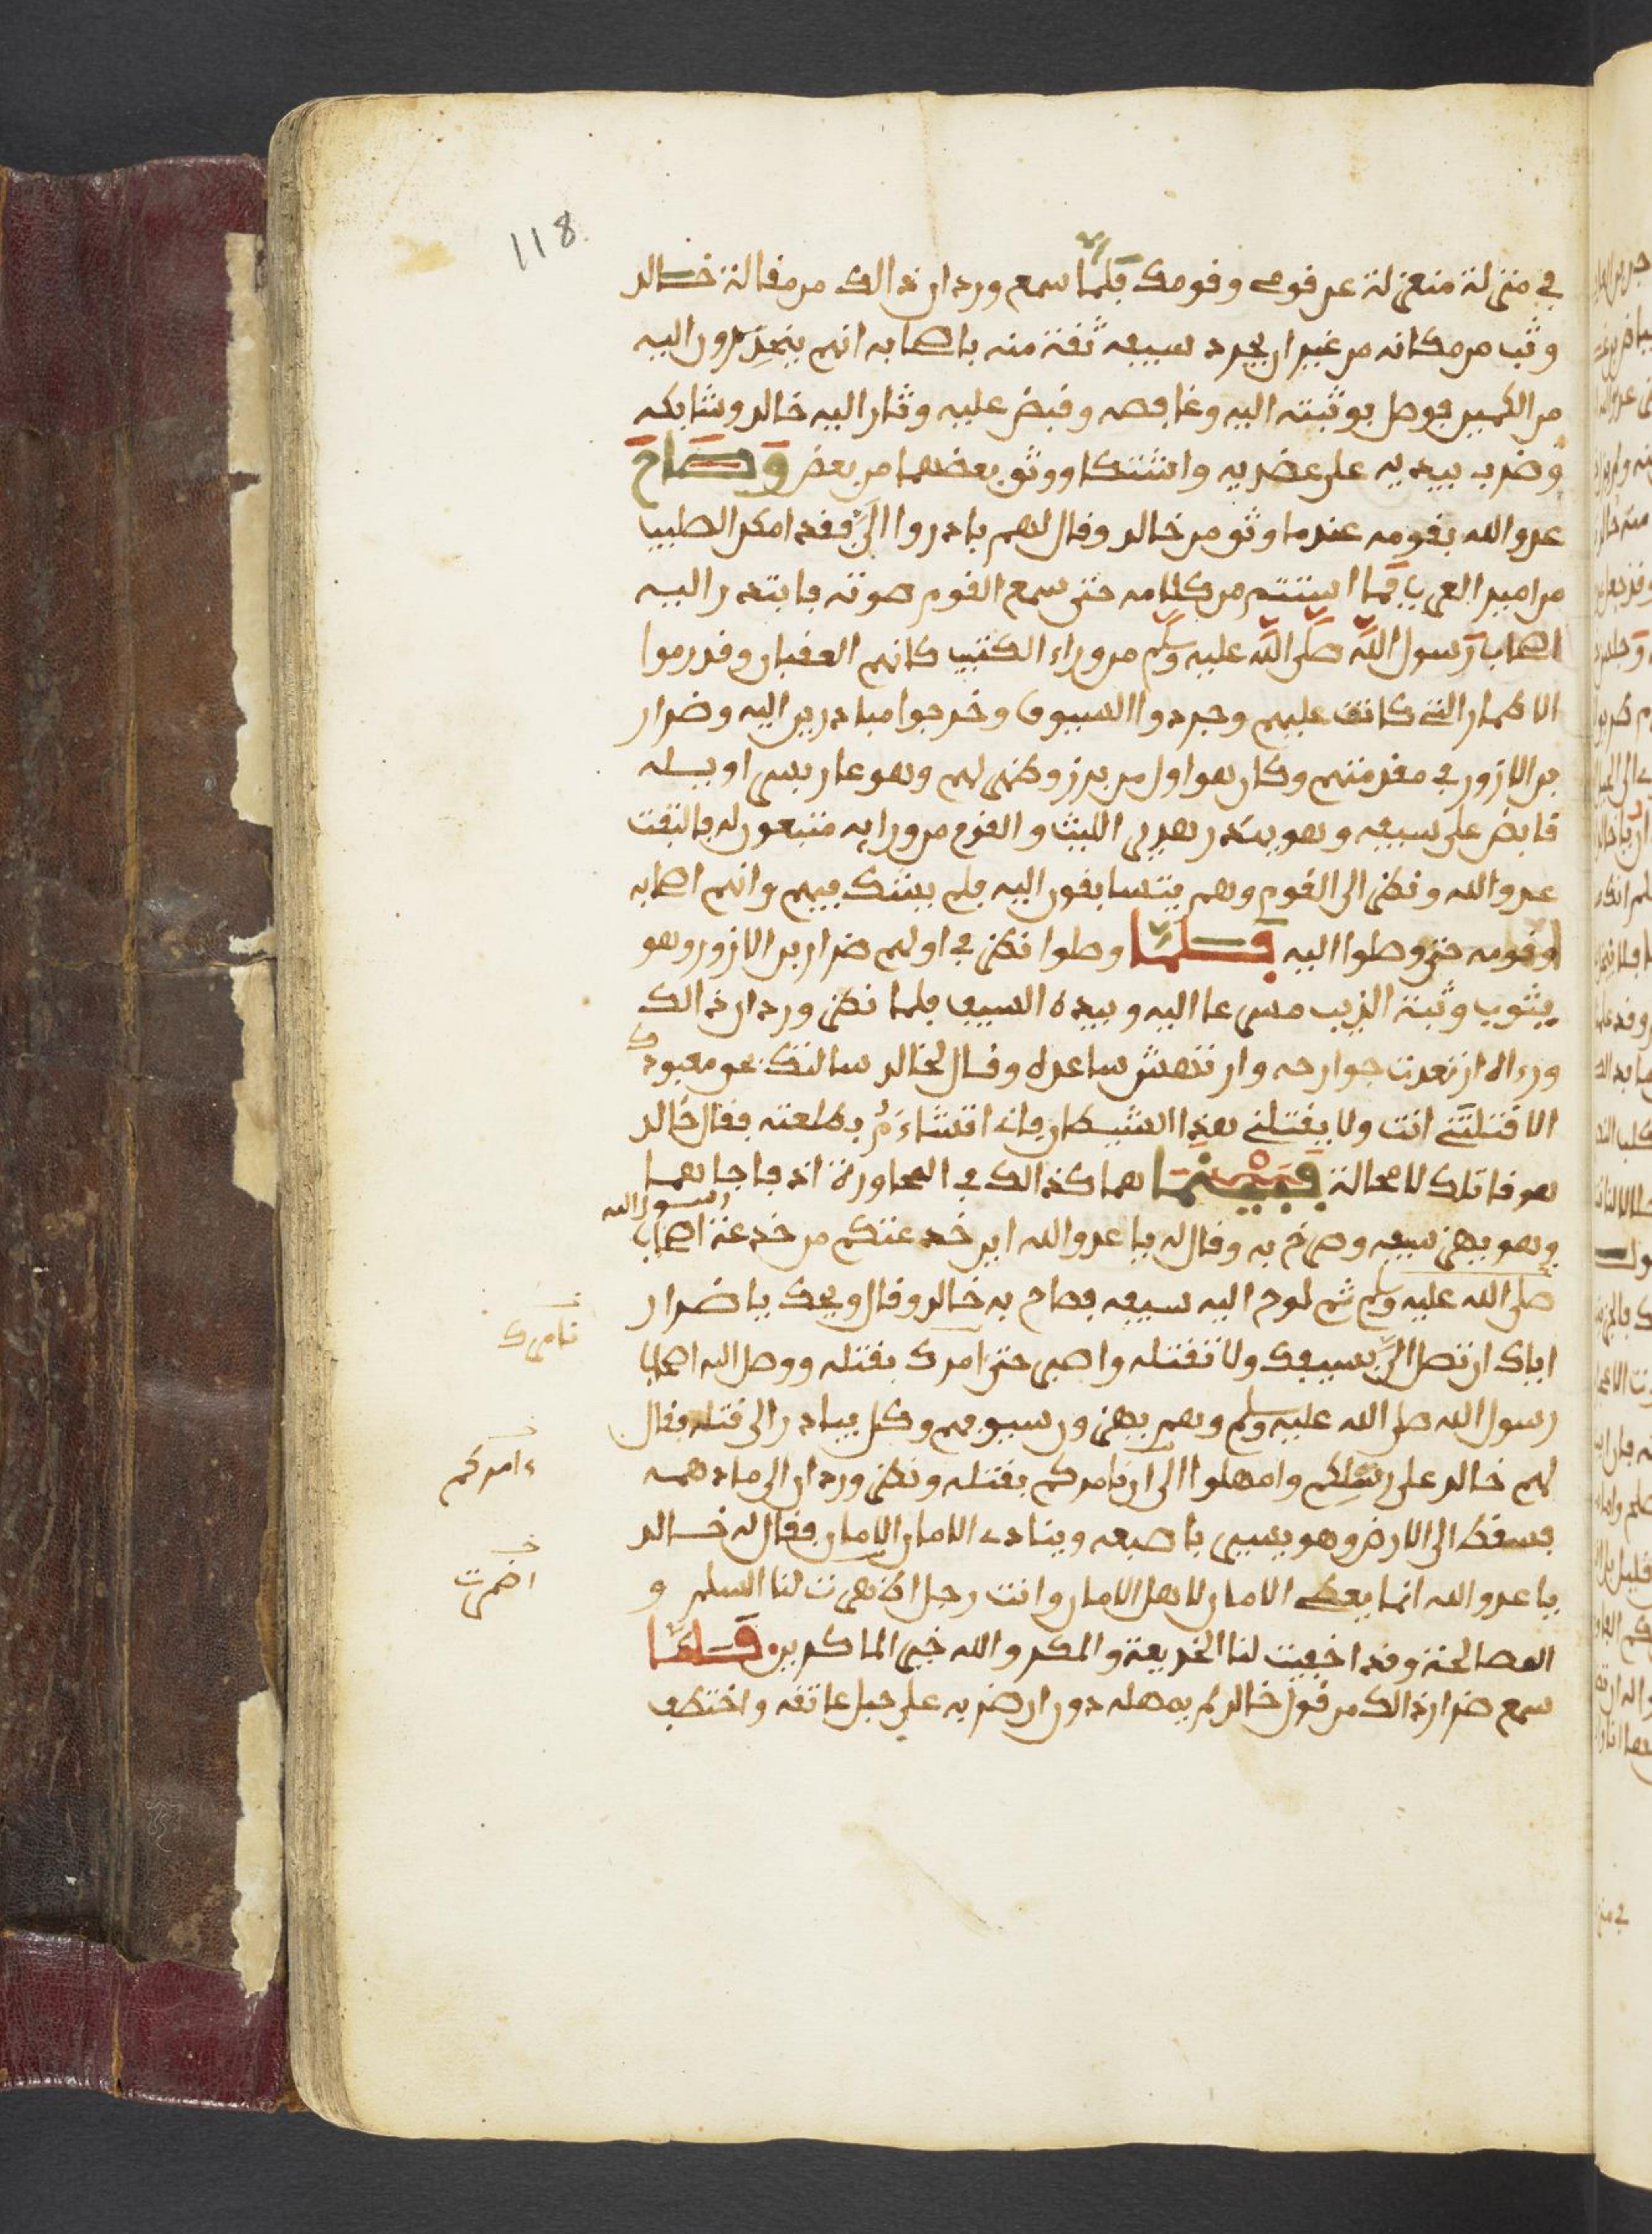 118
في منزلة منعزلة عن قومي وقومك فلما سمع وردان ذالك من مقالة خالد
وثب من مكانه من غير ان يجرد سيفه ثقة منه باصحابه انهم ينحدرون اليه
من الكمين فوصل بوثبته اليه وغافصه وقبض عليه وثار اليه خالد وشابكه
وضرب بيديه على عضديه واشتبكا ووثق بعضهما من بعض وصاح
عدو الله بقومه عندما وثق من خالد وقال لهم بادروا الي فقد امكن الصليب
من امير العرب فما استتم من كلامه حتى سمع القوم صوته فابتدر اليه
اصحاب رسول الله صلى الله عليه وسلم من وراء الكثيب كانهم العقبان وقد رموا
الاطمار التي كانت عليهم وجردوا السيوف وخرجوا مبادرين اليه وضرار
بن الازور في مقدمتهم وكان هو اول من برز وظهر لهم وهو عار بسراويله
قابض على سيفه وهو يهدر هدير الليث والقوم من ورايه متبعون له فالتفت
عدو الله ونظر الى القوم وهم يتسابقون اليه فلم يشك فيهم وانهم اصحابه
وقومه حتى وصلوا اليه فلما وصلوا نظر في اولهم ضرار بن الازور وهو
يثوب وثبة الذيب مسرعا اليه وبيده السيف فلما نظر وردان ذالك
ورءاه ارتعدت جوارحه وارتعش ساعده وقال لخالد سالتك بحق معبودك
الا قتلتني انت ولا يقتلني هذا الشيطان فانا اتشاءم بطلعته فقال خالد
هو قاتلك لا محالة فبينما هما كذالك في المحاورة اذ فاجاهما
وهو يهز سيفه وصرخ به وقال له يا عدو الله اين خدعتكم من خدعة اصحاب رسول الله
صلى الله عليه وسلم ثم لوح اليه سيفه فصاح به خالد وقال ويحك يا ضرار
اياك ان تصل الي بسيفك ولا تقتله واصبر حتى امرك بقتله ووصل اليه اصحاب
نامرك
رسول الله صلى الله عليه وسلم وهم يهزون سيوفهم وكل يبادر الى قتله فقال
لهم خالد على رسلكم وامهلوا الى ان نامركم بقتله ونظر وردان الى ما دهمه
ءامركم
فسقط الى الارض وهو يشير باصبعه وينادي الامان الامان فقال له خالد
يا عدو الله انما يعطى الامان لاهل الامان وانت رجل اظهرت لنا السلم و
اضمرت
المصالحة وقد اخفيت لنا الخديعة والمكر والله خير الماكرين فلما
سمع ضرار ذالك من قول خالد لم يمهله دون ان ضربه على حبل عاتقه واختطف